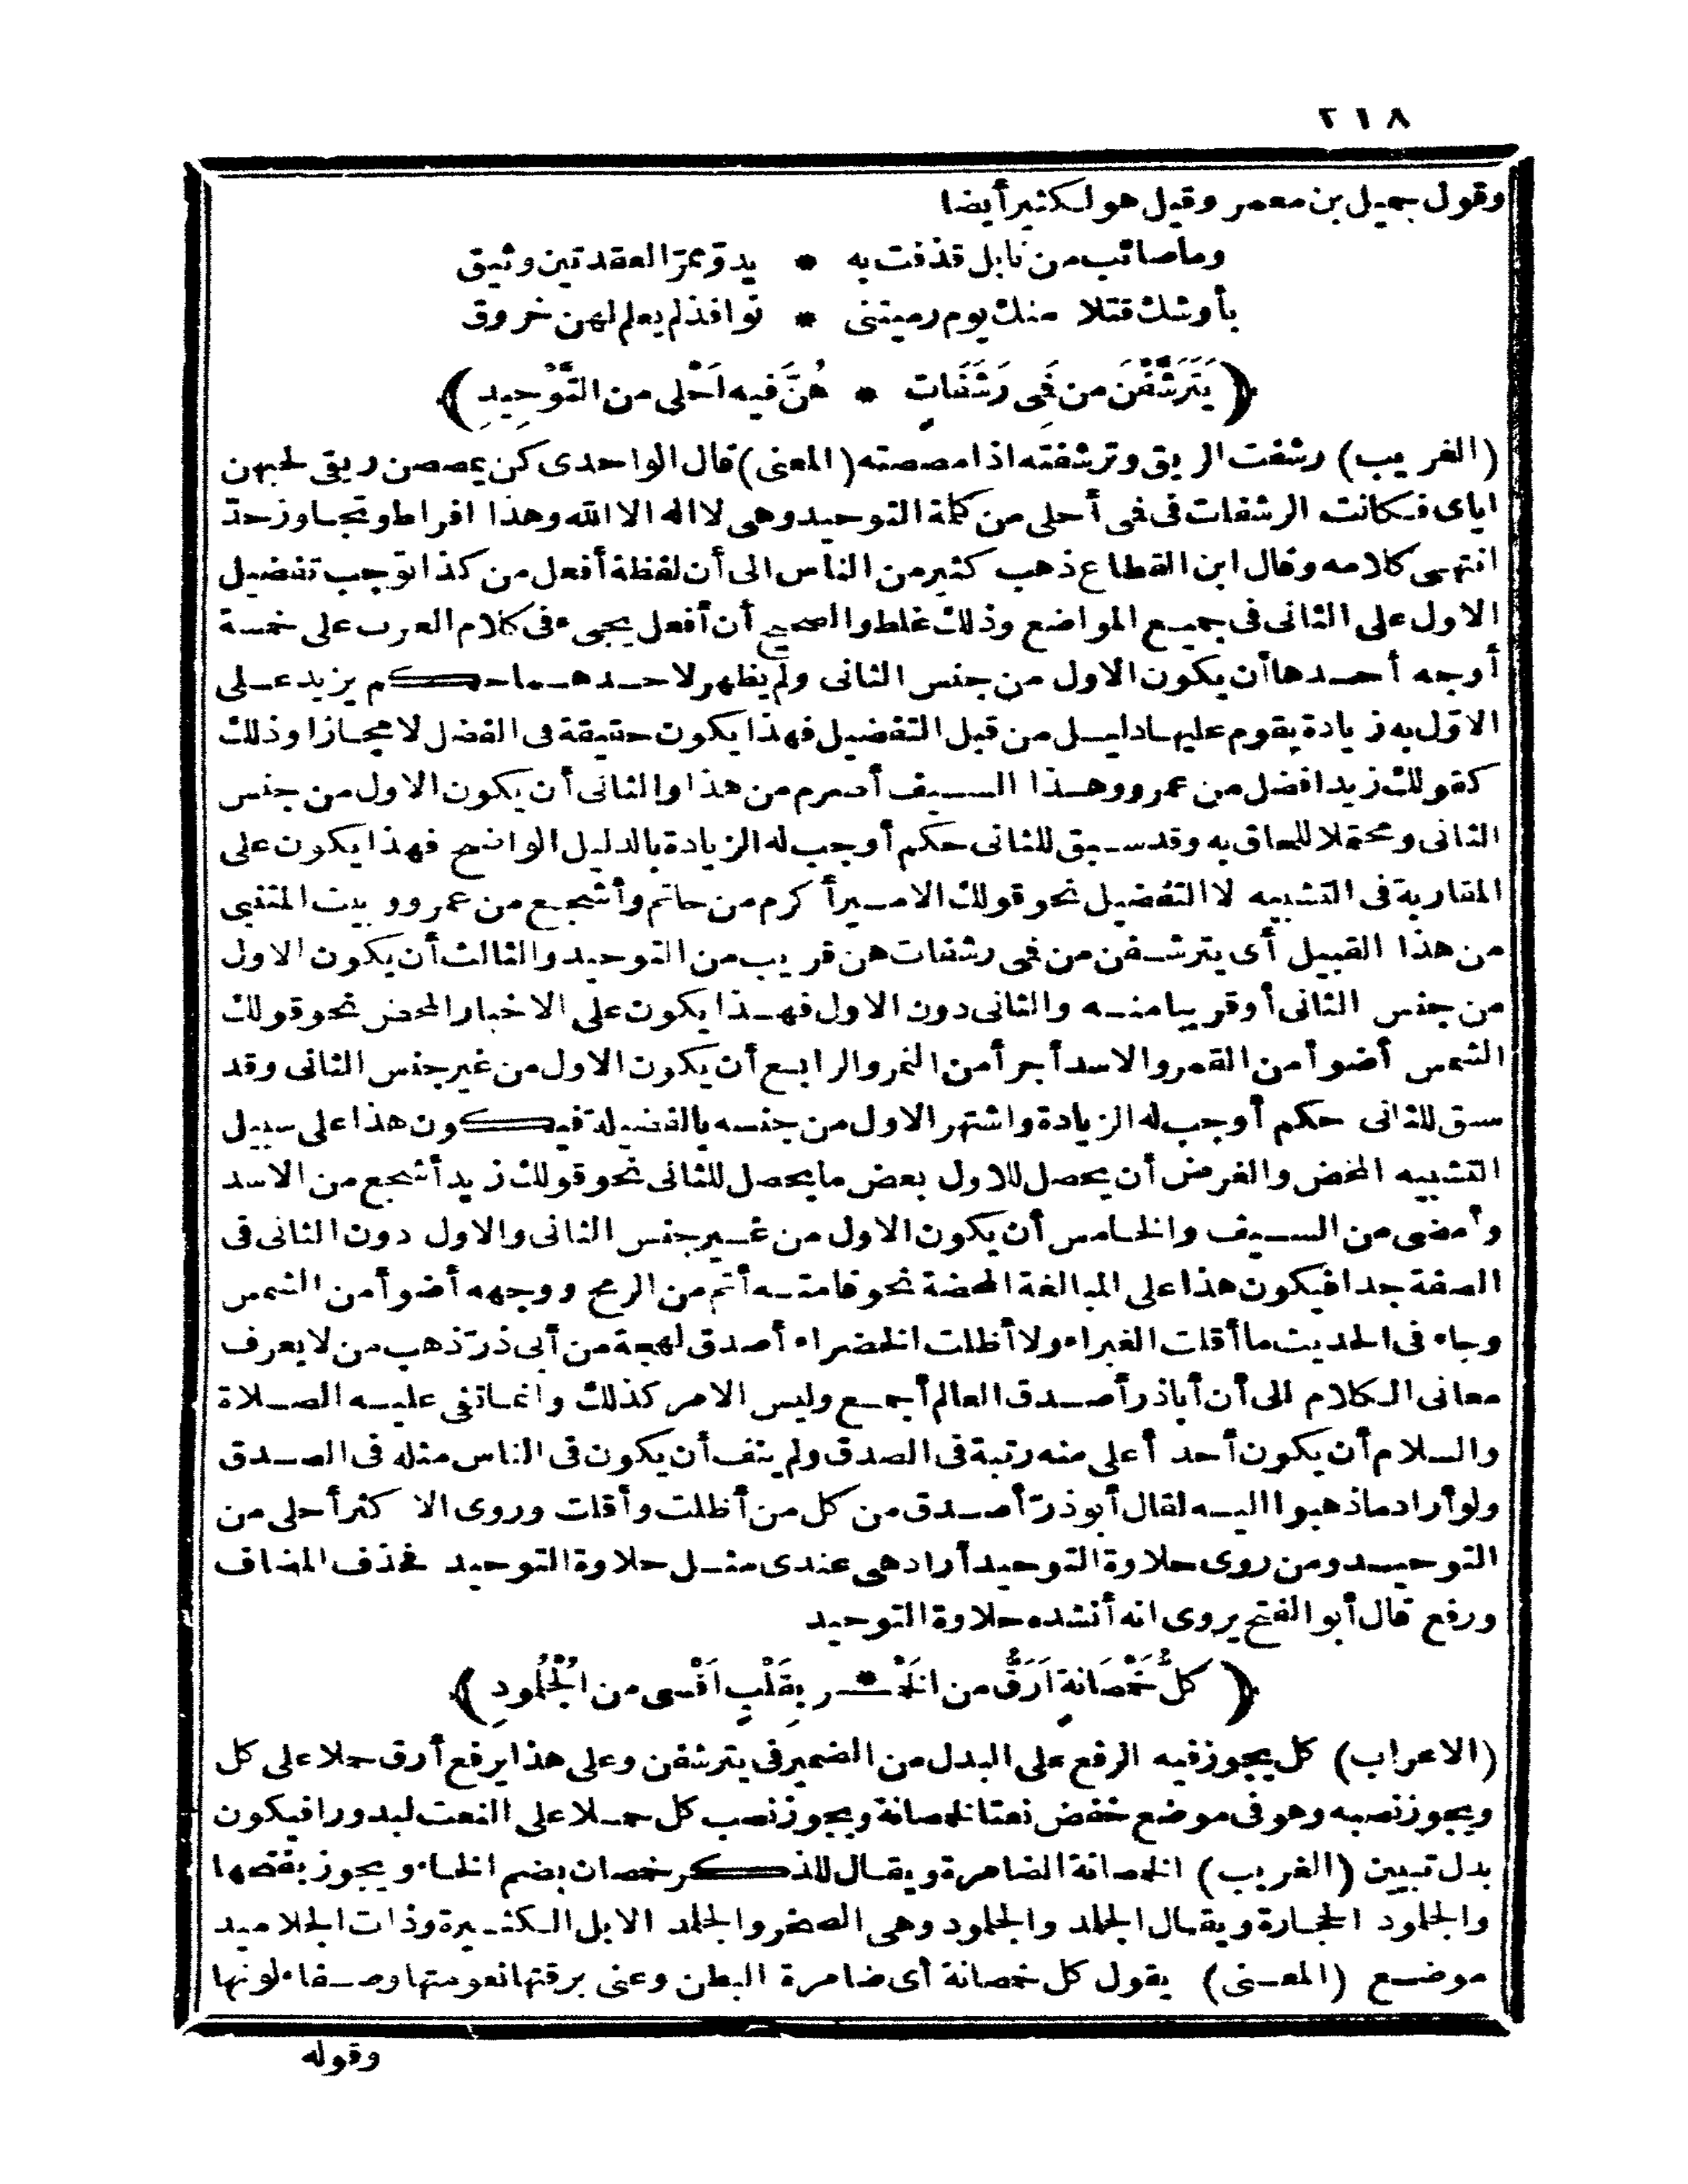 ٢١٨
وقول جميل بن معمر وقيل هو لكثير أيضا
وما صائب من نابل قذفت به * يد وممرّ العقدتين وثيق
بأوشك قتلا منك يوم رميتنى * نوافذ لم يعلم لهن خروق
﴿يَتَرَشَّفْنَ من فَمِى رَشَفَاتٍ * هُنَّ فيه اَحْلى من التَّوْحِيدِ﴾
(الغريب) رشفت الريق وترشفته اذا مصصته (المعنى) قال الواحدى كن يمصصن ريقى لحبهن
اياى فكانت الرشفات فى فمى أحلى من كلمة التوحيد وهى لا اله الا الله وهذا افراط وتجاوز حدّ
انتهى كلامه وقال ابن القطاع ذهب كثير من الناس الى أن لفظة أفعل من كذا توجب تفضيل
الاول على الثانى فى جميع المواضع وذلك غلط والصحيح أن أفعل يجىء فى كلام العرب على خمسة
أوجه أحدها أن يكون الاول من جنس الثانى ولم يظهر لاحدهما حكم يزيد على
الاوّل به زيادة يقوم عليها دليل من قبل التفضيل فهذا يكون حقيقة فى الفضل لا مجازا وذلك
كقولك زيد افضل من عمرو وهذا السيف أصرم من هذا والثانى أن يكون الاول من جنس
الثانى ومحتملا للحاق به وقد سبق للثانى حكم أوجب له الزيادة بالدليل الواضح فهذا يكون على
المقاربة فى التشبيه لا التفضيل نحو قولك الامير أكرم من حاتم وأشجع من عمرو وبيت المتنبى
من هذا القبيل أى يترشفن من فمى رشفات هن قريب من التوحيد والثالث أن يكون الاول
من جنس الثانى أو قريبا منه والثانى دون الاول فهذا يكون على الاخبار المحض نحو قولك
الشمس أضوأ من القمر والاسد أجرأ من النمر والرابع أن يكون الاول من غير جنس الثانى وقد
سبق للثانى حكم أوجب له الزيادة واشتهر الاول من جنسه بالفضيلة فيكون هذا على سبيل
التشبيه المحض والغرض أن يحصل للاول بعض ما يحصل للثانى نحو قولك زيد أشجع من الاسد
وأمضى من السيف والخامس أن يكون الاول من غير جنس الثانى والاول دون الثانى فى
الصفة جدا فيكون هذا على المبالغة المحضة نحو قامته أتم من الرمح ووجهه أضوأ من الشمس
وجاء فى الحديث ما أقلت الغبراء ولا أظلت الخضراء أصدق لهجة من أبى ذرّ ذهب من لا يعرف
معانى الكلام الى أن أباذر أصدق العالم أجمع وليس الامر كذلك وانما نفى عليه الصلاة
والسلام أن يكون أحد أعلى منه رتبة فى الصدق ولم ينف أن يكون فى الناس مثله فى الصدق
ولو أراد ما ذهبوا اليه لقال أبو ذرّ أصدق من كل من أظلت وأقلت وروى الاكثر أحلى من
التوحيد ومن روى حلاوة التوحيد أراد هى عندى مثل حلاوة التوحيد فحذف المضاف
ورفع قال أبو الفتح يروى انه أنشده حلاوة التوحيد
﴿كُلُّ خَمْصَانَةٍ اَرَقُّ من الخَمْـ*ـر بِقَلْبٍ اَقْسى من الجُلْمُودِ﴾
(الاعراب) كل يجوز فيه الرفع على البدل من الضمير فى يترشفن وعلى هذا يرفع أرق حملا على كل
ويجوز نصبه وهو فى موضع خفض نعتا لخمصانة ويجوز نصب كل حملا على النعت لبدورا فيكون
بدل تبيين (الغريب) الخمصانة الضامرة ويقال للذكر خمصان بضم الخاء ويجوز بفتحها
والجلمود الحجارة ويقال الجلمد والجلمود وهى الصخر والجلمد الابل الكثيرة وذات الجلاميد
موضع (المعنى) يقول كل خمصانة أى ضامرة البطن وعنى برقتها نعومتها وصفاء لونها
وقوله